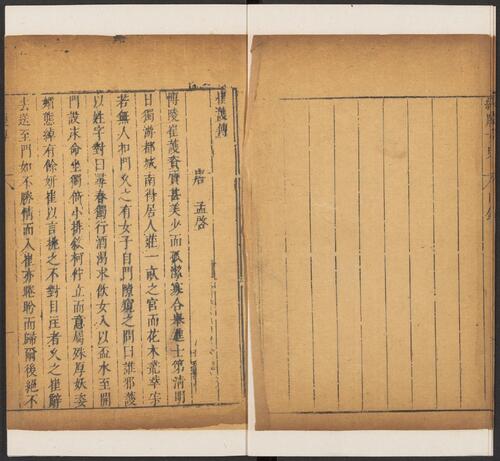 崔護傳
唐　孟啓
博陵崔護資質甚美少而孤潔寡合舉進士第清明
日獨游都城南得居人莊一畝之宮而花木叢萃寂
若無人扣門久之有女子自門隙窺之問曰誰邪護
以姓字對曰尋春獨行酒渴求飲女入以盃水至開
門設床命坐獨倚小桃斜柯佇立而意屬殊厚妖姿
媚態綽有餘妍崔以言挑之不對目注者久之崔辭
去送至門如不勝情而入崔亦睠盼而歸爾後絕不